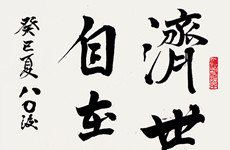 濟世
自在
癸巳夏八〇波